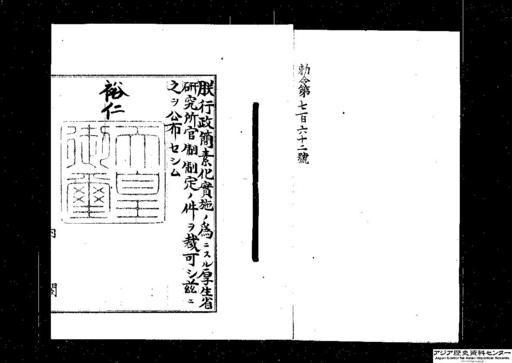 勅令第七百六十二號
朕行政簡素化實施ノ為ニスル厚生省
研究所官制制定ノ件ヲ裁可シ茲ニ
之ヲ公布セシム
裕仁
天皇
御璽
内閣
アジア歴史資料センター
Japan Center for Asian Historical Records